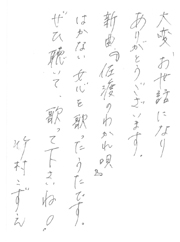 大変、お世話になり
ありがとうございます。
新曲『佐渡のわかれ唄』
はかない女心を歌ったうたです。
ぜひ聴いて、歌って下さいね♪。
竹村こずえ